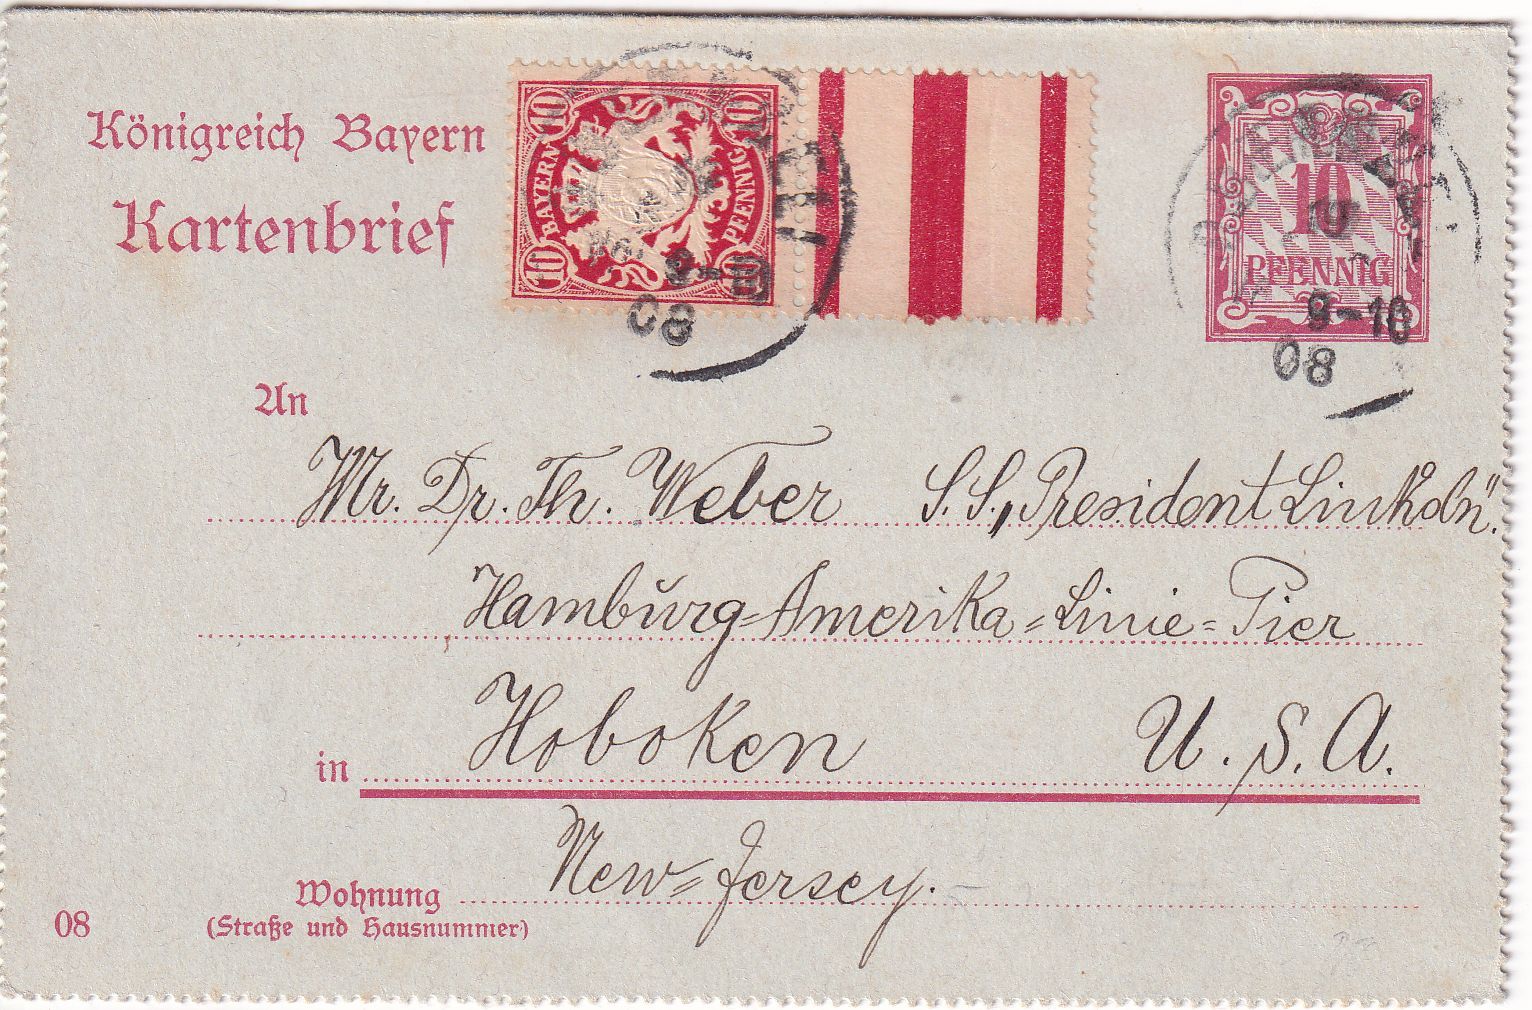 Königreich Bayern
Kartenbrief
10 10
BAYERN
PFENNIG
10 10
9-10
08
10
PFENNIG
9-10
08
An
Mr. Dr. Th. Weber S.S. „President Linkoln".
Hamburg=Amerika=Linie=Pier
in Hoboken U.S.A.
New=Jersey.
Wohnung
(Straße und Hausnummer)
08